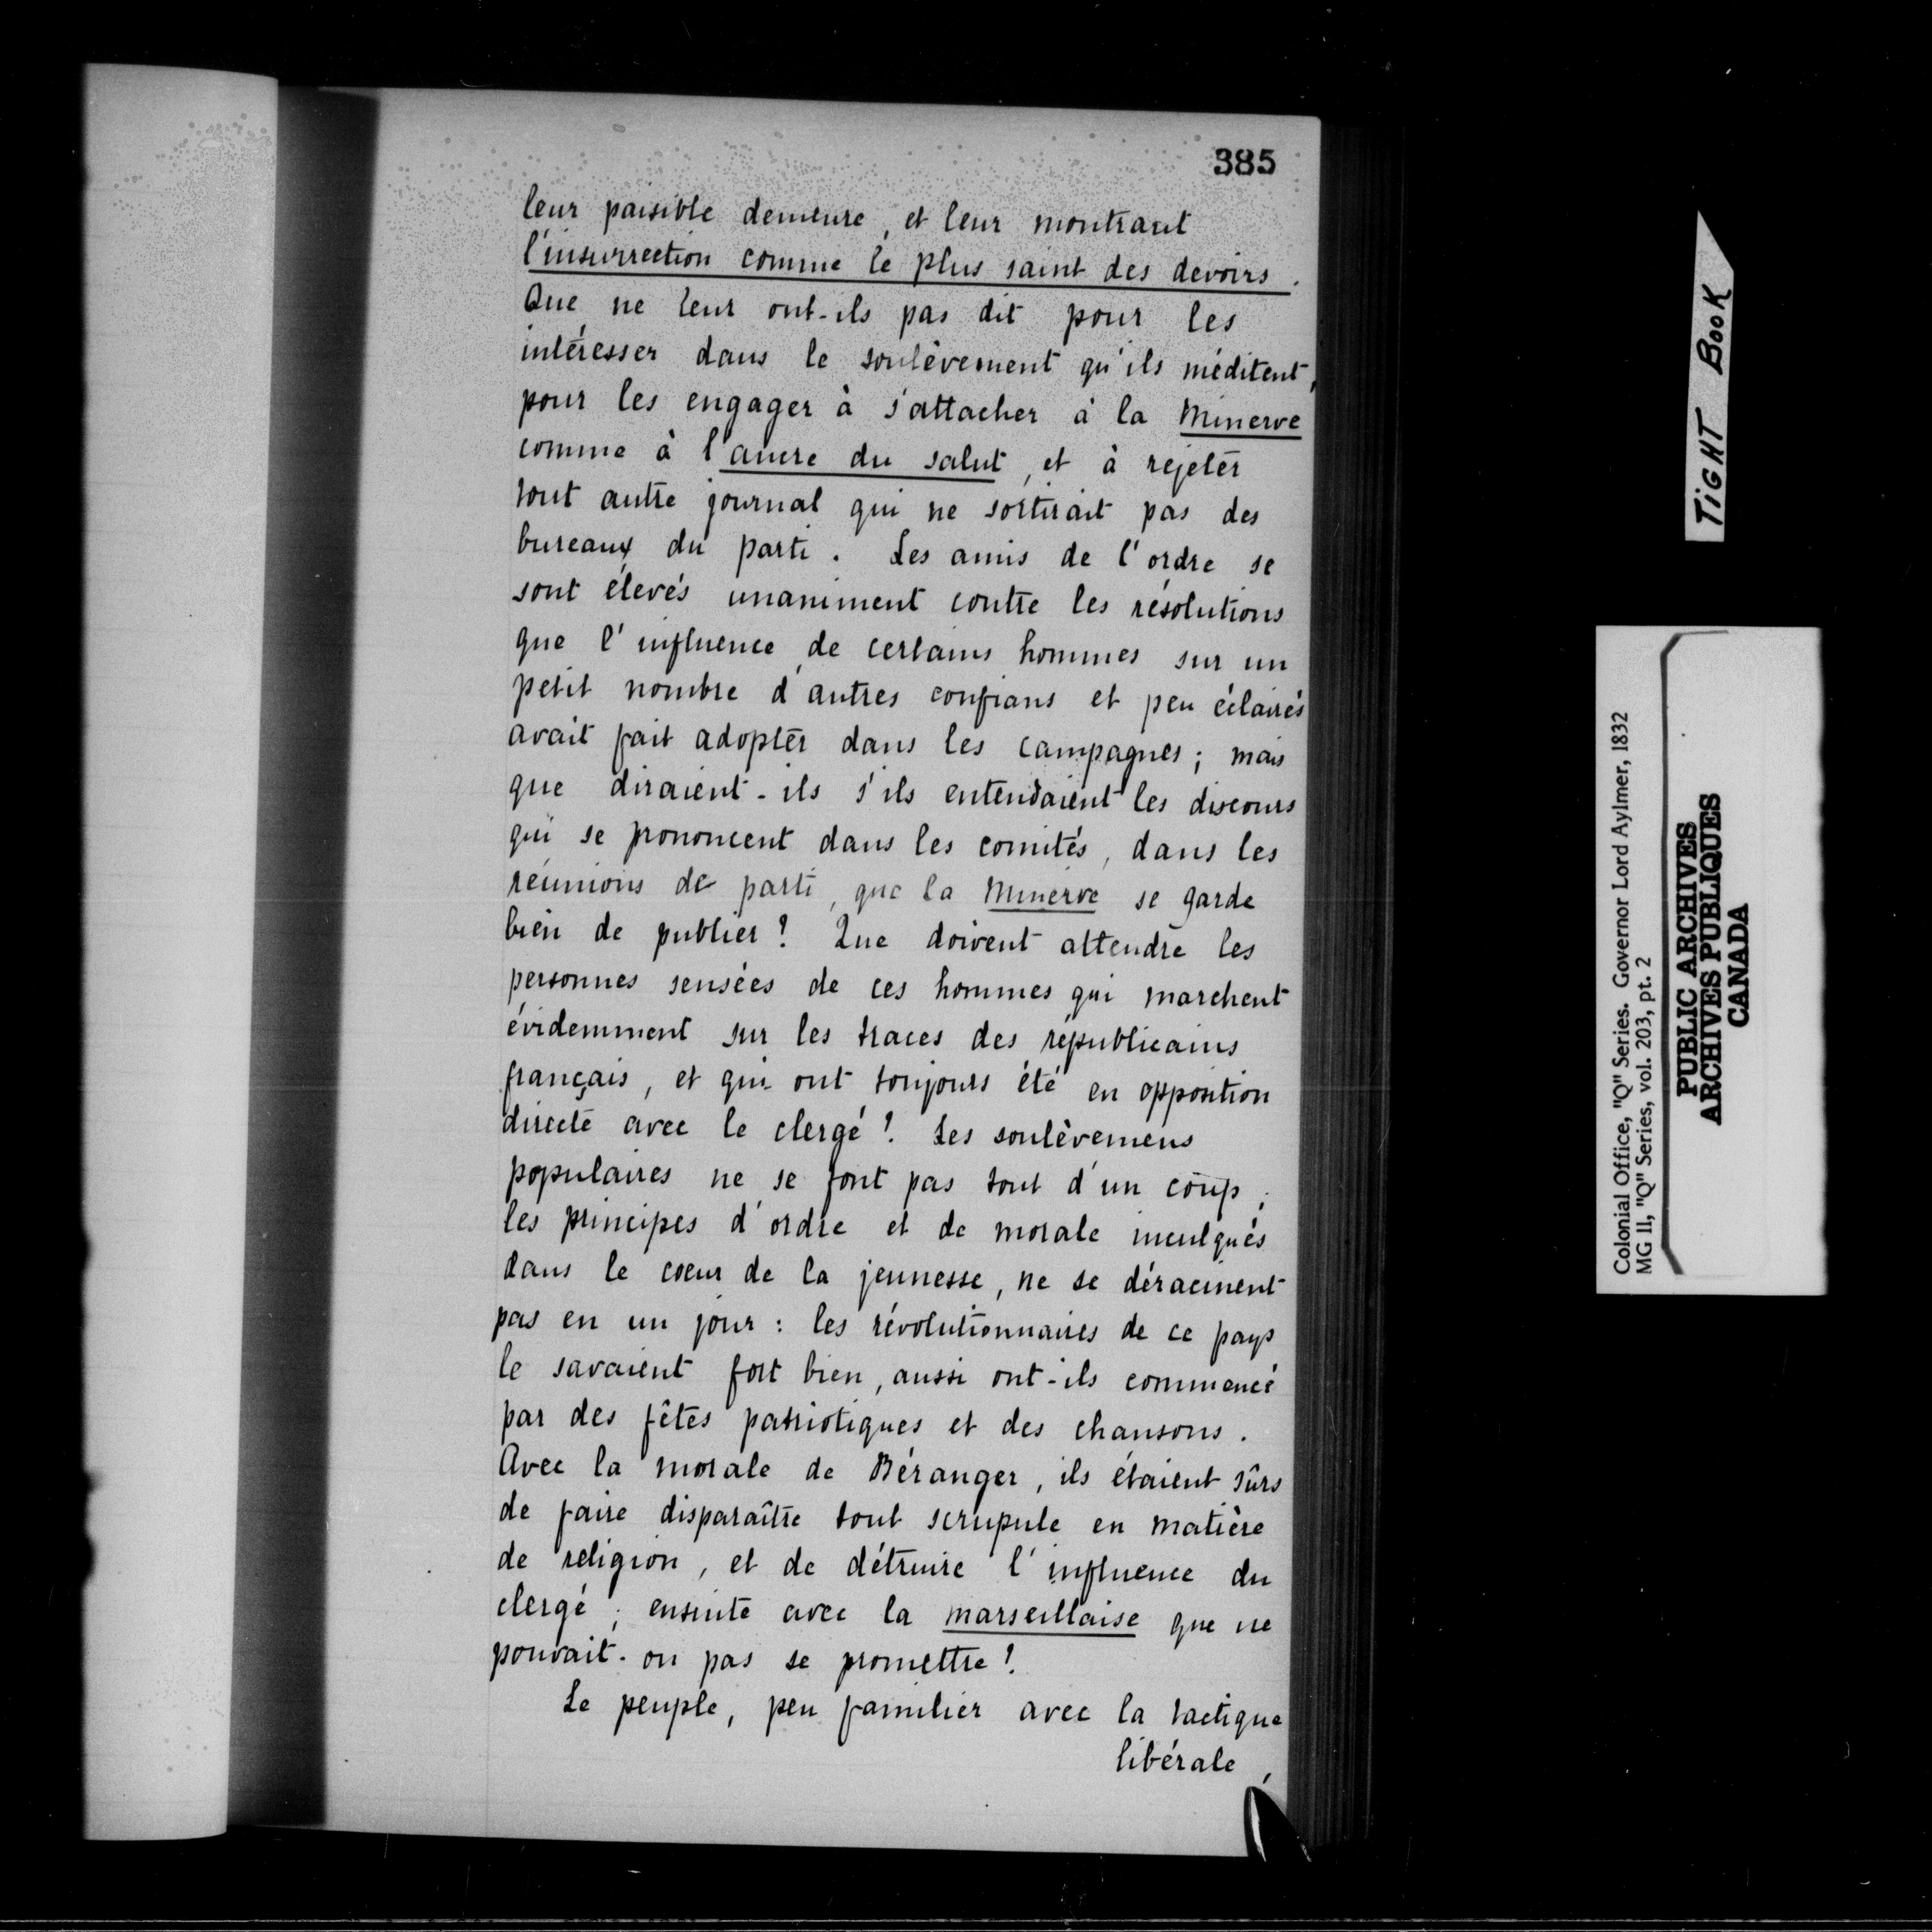 385
leur paisible demeure, et leur montrant
l'insurrection comme le plus saint des devoirs.
Que ne leur ont-ils pas dit pour les
intéresser dans le soulèvement qu'ils méditent,
pour les engager à s'attacher à la Minerve
comme à l'ancre du salut, et à rejeter
tout autre journal qui ne sortirait pas des
bureaux du parti. Les amis de l'ordre se
sont élevés unaniment contre les résolutions
que l'influence de certains hommes sur un
petit nombre d'autres confians et peu éclairés
avait fait adopter dans les campagnes; mais
que diraient-ils s'ils entendaient les discours
qui se prononcent dans les comités, dans les
réunions de parti, que la Minerve se garde
bien de publier? Que doivent attendre les
personnes sensées de ces hommes qui marchent
évidemment sur les traces des républicains
français, et qui ont toujours été en opposition
directe avec le clergé? Les soulèvemens
populaires ne se font pas tout d'un coup;
les principes d'ordre et de morale inculqués
dans le coeur de la jeunesse, ne se déracinent
pas en un jour: les révolutionnaires de ce pays
le savaient fort bien, aussi ont-ils commencé
par des fêtes patriotiques et des chansons.
Avec la morale de Béranger, ils étaient sûrs
de faire disparaître tout scrupule en matière
de religion, et de détruire l'influence du
clergé; ensuite avec la marseillaise que ne
pouvait-on pas se promettre?
Le peuple, peu familier avec la tactique
libérale,
TIGHT BOOK
Colonial Office, "Q" Series. Governor Lord Aylmer, 1832
MG 11, "Q" Series, vol. 203, pt. 2
PUBLIC ARCHIVES
ARCHIVES PUBLIQUES
CANADA